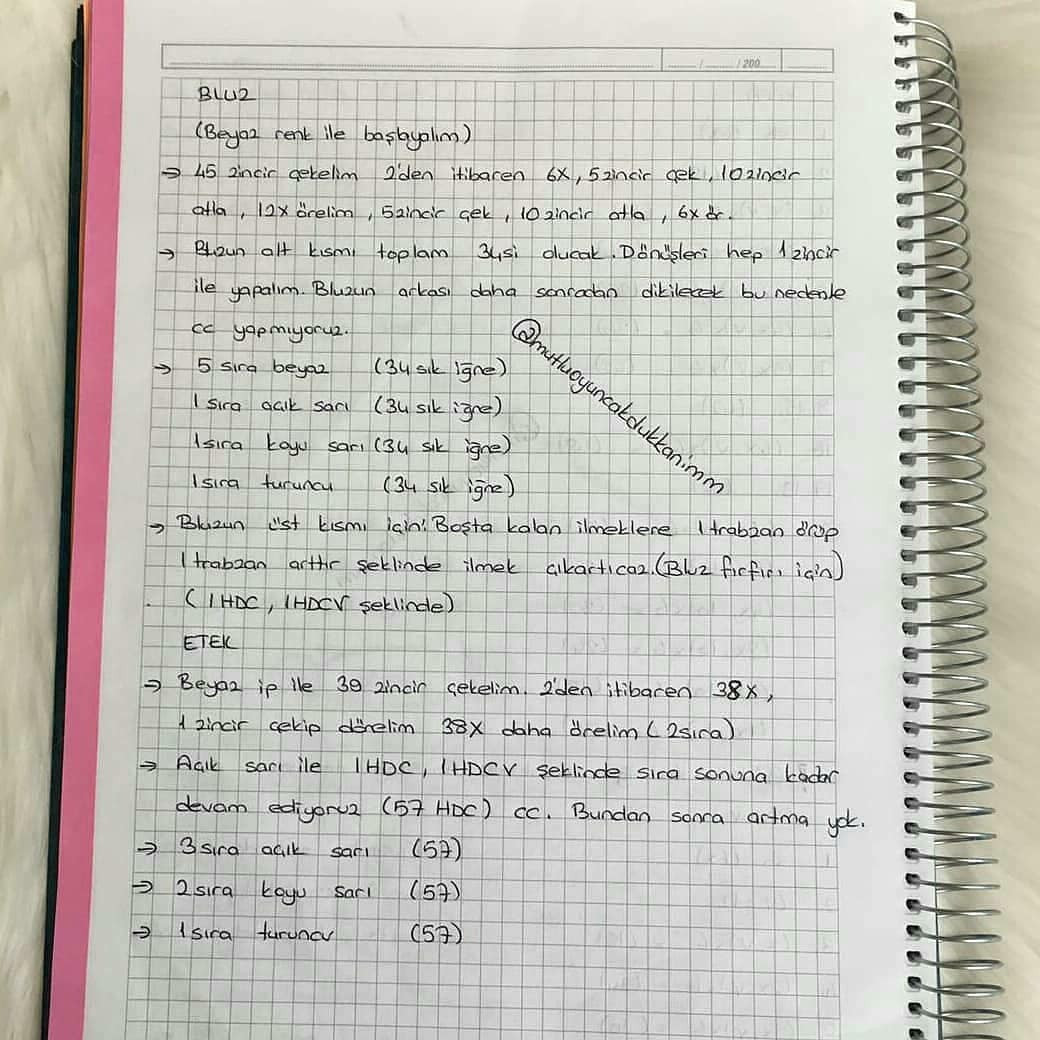 / /200
BLUZ
(Beyaz renk ile başlayalım)
→ 45 zincir çekelim 2'den itibaren 6X, 5 zincir çek, 10 zincir
atla, 12X örelim, 5 zincir çek, 10 zincir atla, 6X ör.
→ Bluzun alt kısmı toplam 34si olucak. Dönüşleri hep 1 zincir
ile yapalım. Bluzun arkası daha sonradan dikilecek bu nedenle
cc yapmıyoruz.
→ 5 sıra beyaz (34 sık iğne)
1 sıra açık sarı (34 sık iğne)
1 sıra koyu sarı (34 sık iğne)
1 sıra turuncu (34 sık iğne)
@mutluoyuncakdukkanimm
→ Bluzun üst kısmı için: Boşta kalan ilmeklere 1 trabzan örüp
1 trabzan arttır şeklinde ilmek çıkartıcaz. (Bluz fırfırı için)
(1 HDC, 1 HDCV şeklinde)
ETEK
→ Beyaz ip ile 39 zincir çekelim. 2'den itibaren 38X,
1 zincir çekip dönelim 38X daha örelim (2 sıra)
→ Açık sarı ile 1HDC, 1HDCV şeklinde sıra sonuna kadar
devam ediyoruz (57 HDC) cc. Bundan sonra artma yok.
→ 3 sıra açık sarı (57)
→ 2 sıra koyu sarı (57)
→ 1 sıra turuncu (57)